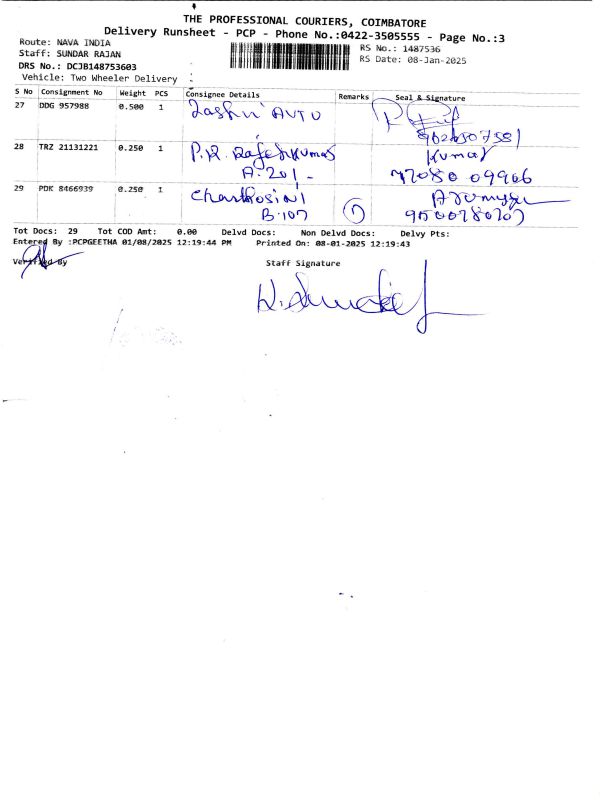 THE PROFESSIONAL COURIERS, COIMBATORE
Delivery Runsheet - PCP - Phone No.:0422-3505555 - Page No.:3
Route: NAVA INDIA
Staff: SUNDAR RAJAN
DRS No.: DCJB148753603
Vehicle: Two Wheeler Delivery
RS No.: 1487536
RS Date: 08-Jan-2025
S No Consignment No Weight PCS Consignee Details Remarks Seal & Signature
27 DDG 957988 0.500 1 AUTO
28 TRZ 21131221 0.250 1 P.R. Rajesh Kumar Kumar
A.201 - 77080 09966
29 PDK 8466939 0.250 1
B.107
Tot Docs: 29 Tot COD Amt: 0.00 Delvd Docs: Non Delvd Docs: Delvy Pts:
Entered By :PCPGEETHA 01/08/2025 12:19:44 PM Printed On: 08-01-2025 12:19:43
Verified By
Staff Signature